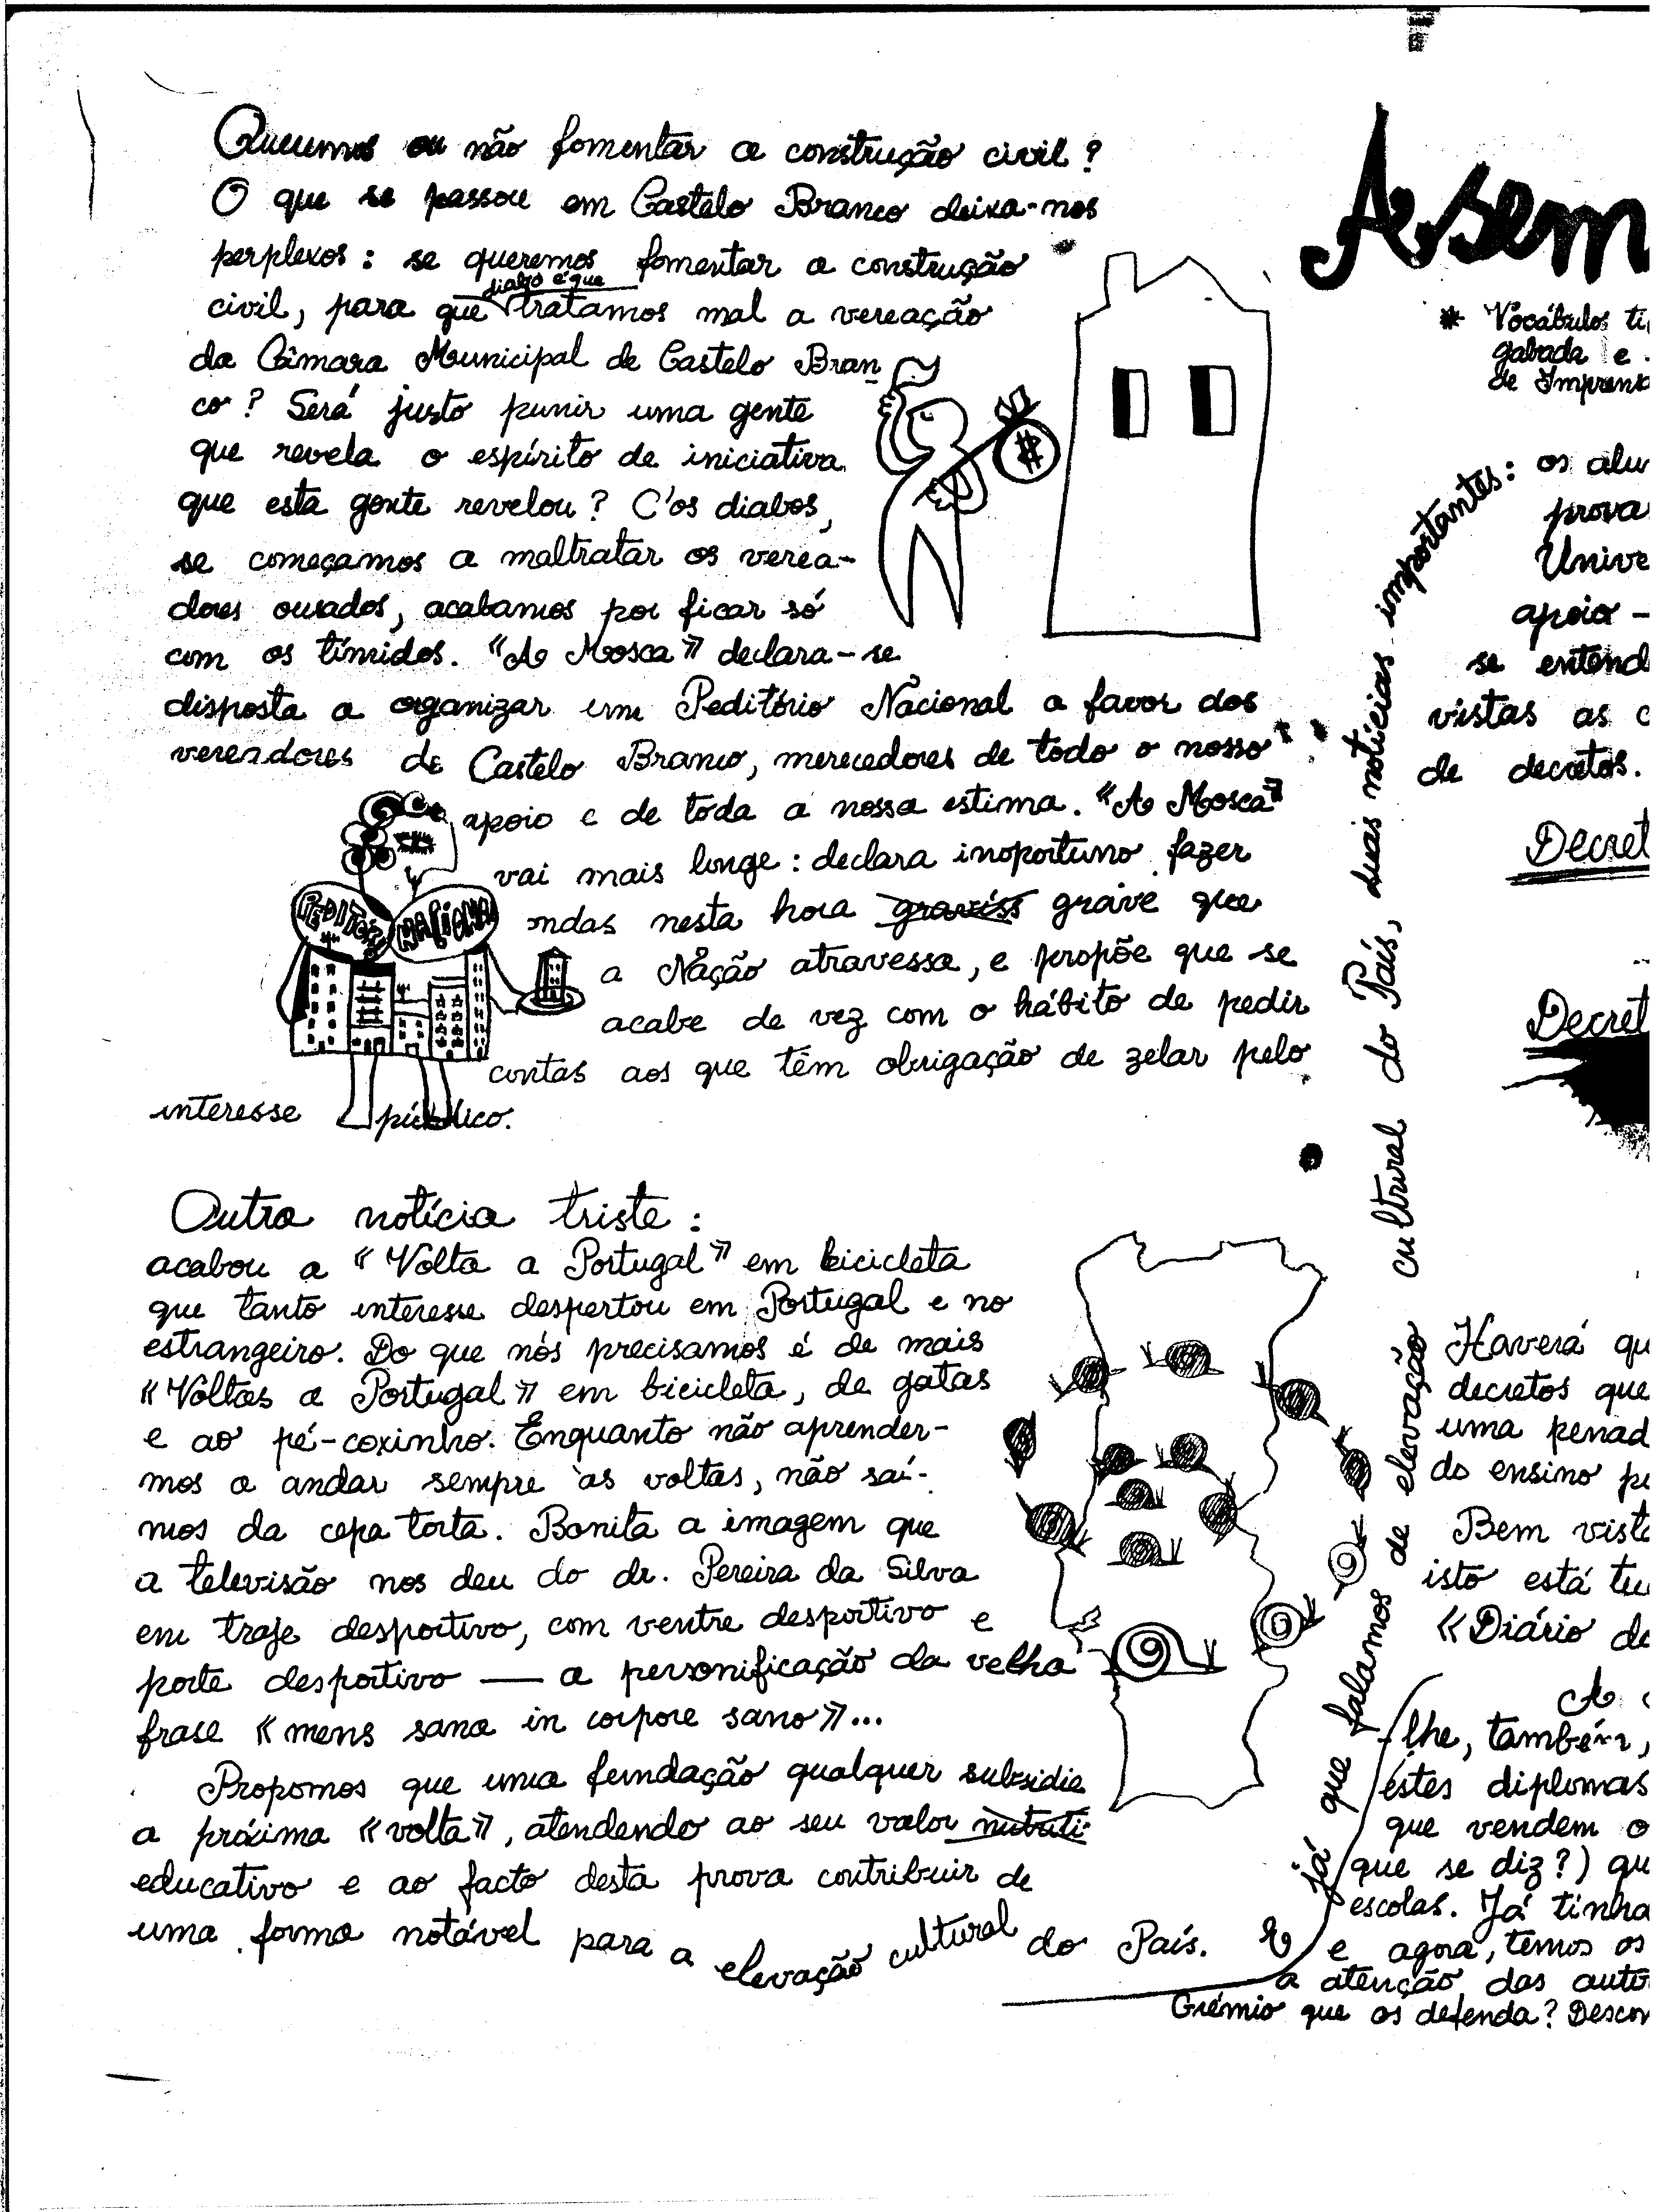 Queremos ou não fomentar a construção civil?
O que se passou em Castelo Branco deixa-nos
perplexos: se queremos fomentar a construção
diabo é que
civil, para que tratamos mal a vereação
da Câmara Municipal de Castelo Bran
co? Será justo punir uma gente
que revela o espírito de iniciativa
que esta gente revelou? C'os diabos,
se começamos a maltratar os verea-
dores ousados, acabamos por ficar só
com os tímidos. «A Mosca» declara-se
disposta a organizar um Peditório Nacional a favor dos
vereadores de Castelo Branco, merecedores de todo o nosso
apoio e de toda a nossa estima. «A Mosca»
vai mais longe: declara inoportuno fazer
ondas nesta hora graviss grave que
a Nação atravessa, e propõe que se
acabe de vez com o hábito de pedir
contas aos que têm obrigação de zelar pelo
interesse público.
PEDITÓRIO NACIONAL
Outra notícia triste:
acabou a «Volta a Portugal» em bicicleta
que tanto interesse despertou em Portugal e no
estrangeiro. Do que nós precisamos é de mais
«Voltas a Portugal» em bicicleta, de gatas
e ao pé-coxinho. Enquanto não aprender-
mos a andar sempre às voltas, não saí-
mos da cepa torta. Bonita a imagem que
a televisão nos deu do dr. Pereira da Silva
em traje desportivo, com ventre desportivo e
porte desportivo — a personificação da velha
frase «mens sana in corpore sano»...
Propomos que uma fundação qualquer subsidie
a próxima «volta», atendendo ao seu valor nutriti
educativo e ao facto desta prova contribuir de
uma forma notável para a elevação cultural do País. E
já que falamos de elevação cultural do País, duas notícias importantes: os alu
A sem
* Vocábulos ti
gabada e
de Imprens
prova
Unive
apoio -
se entend
vistas as c
de decretos.
Decret
Decret
Haverá qu
decretos que
uma penad
do ensino pe
Bem vist
isto está tu
«Diário do
A
lhe, também,
êstes diplomas
que vendem o
que se diz?) qu
escolas. Já tinha
e agora, temos os
a atenção das auto
Grémio que os defenda? Descon